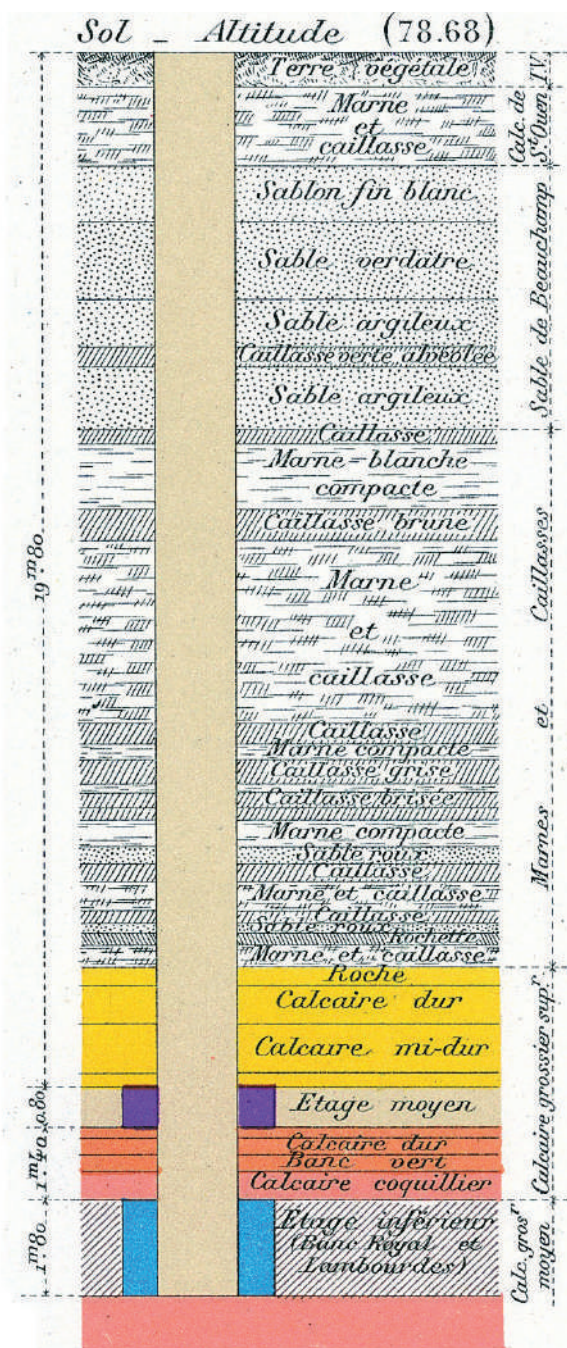 Sol - Altitude (78.68)
Terre végétale
Marne
et
caillasse
Sablon fin blanc
Sable verdâtre
Sable argileux
Caillasse verte alvéolée
Sable argileux
Caillasse
Marne-blanche
compacte
Caillasse brune
Marne
et
caillasse
Caillasse
Marne compacte
Caillasse grise
Caillasse brisée
Marne compacte
Sable roux
Caillasse
Marne et caillasse
Caillasse
Sable roux
Rochette
Marne et caillasse
Roche
Calcaire dur
Calcaire mi-dur
Etage moyen
Calcaire dur
Banc vert
Calcaire coquillier
Etage inférieur
(Banc Royal et
Lambourdes)
19m80
0.80
1m40
1m80
IV
Calc. de
St Ouen
Sable de Beauchamp
Marnes et Caillasses
Calcaire grossier supr
Calc. grosr
moyen